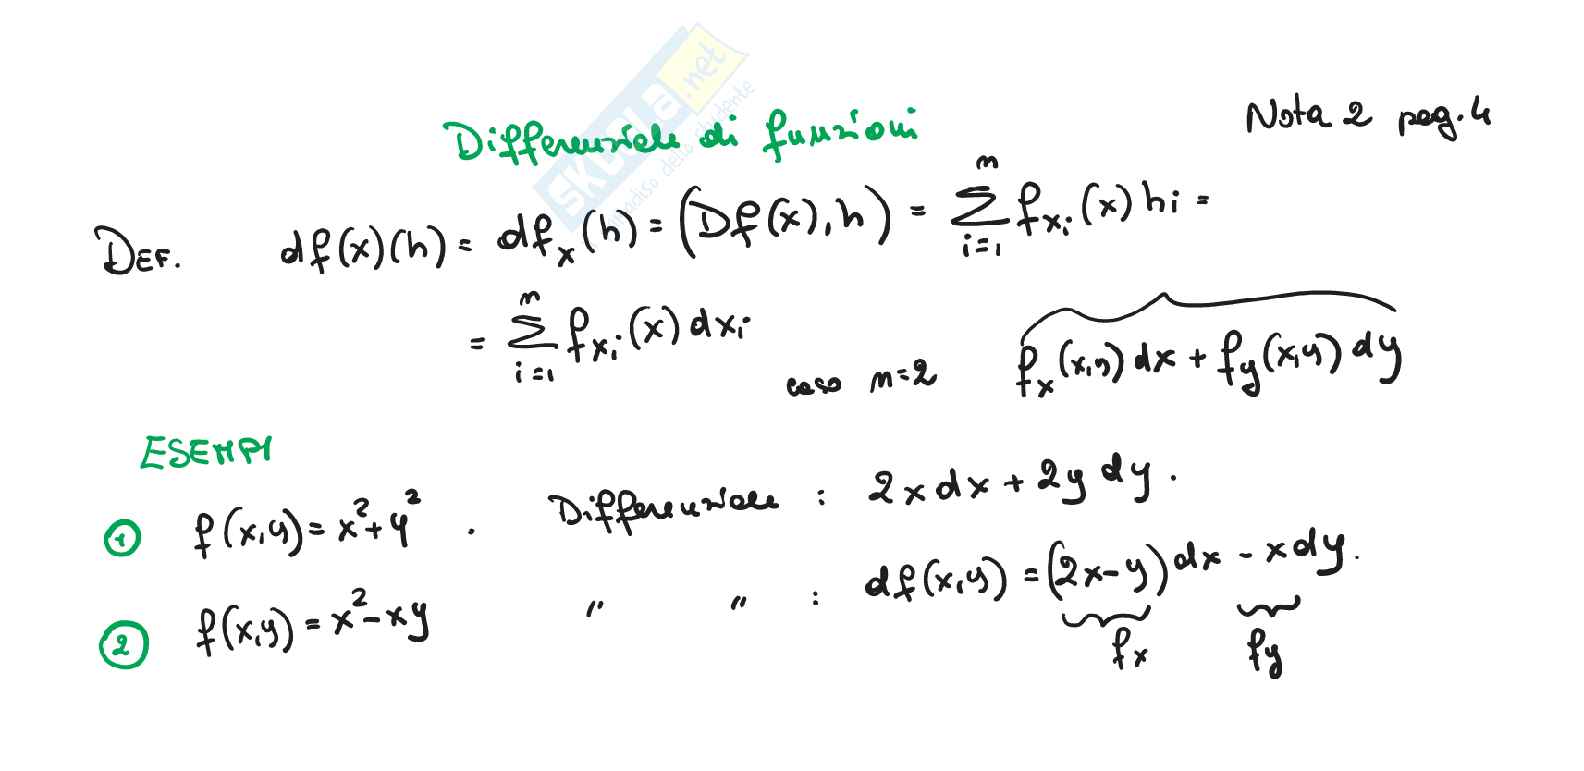 SKUOLA.net
paradiso dello studente
Differenziale di funzioni
Nota 2 pag. 4
DEF. df(x)(h) = df_x(h) = (Df(x), h) = \sum_{i=1}^{n} f_{x_i}(x) h_i =
= \sum_{i=1}^{n} f_{x_i}(x) dx_i
caso n=2 f_x(x,y) dx + f_y(x,y) dy
ESEMPI
① f(x,y) = x² + y² . Differenziale : 2x dx + 2y dy .
② f(x,y) = x² - xy " " : df(x,y) = (2x-y) dx - x dy .
f_x f_y